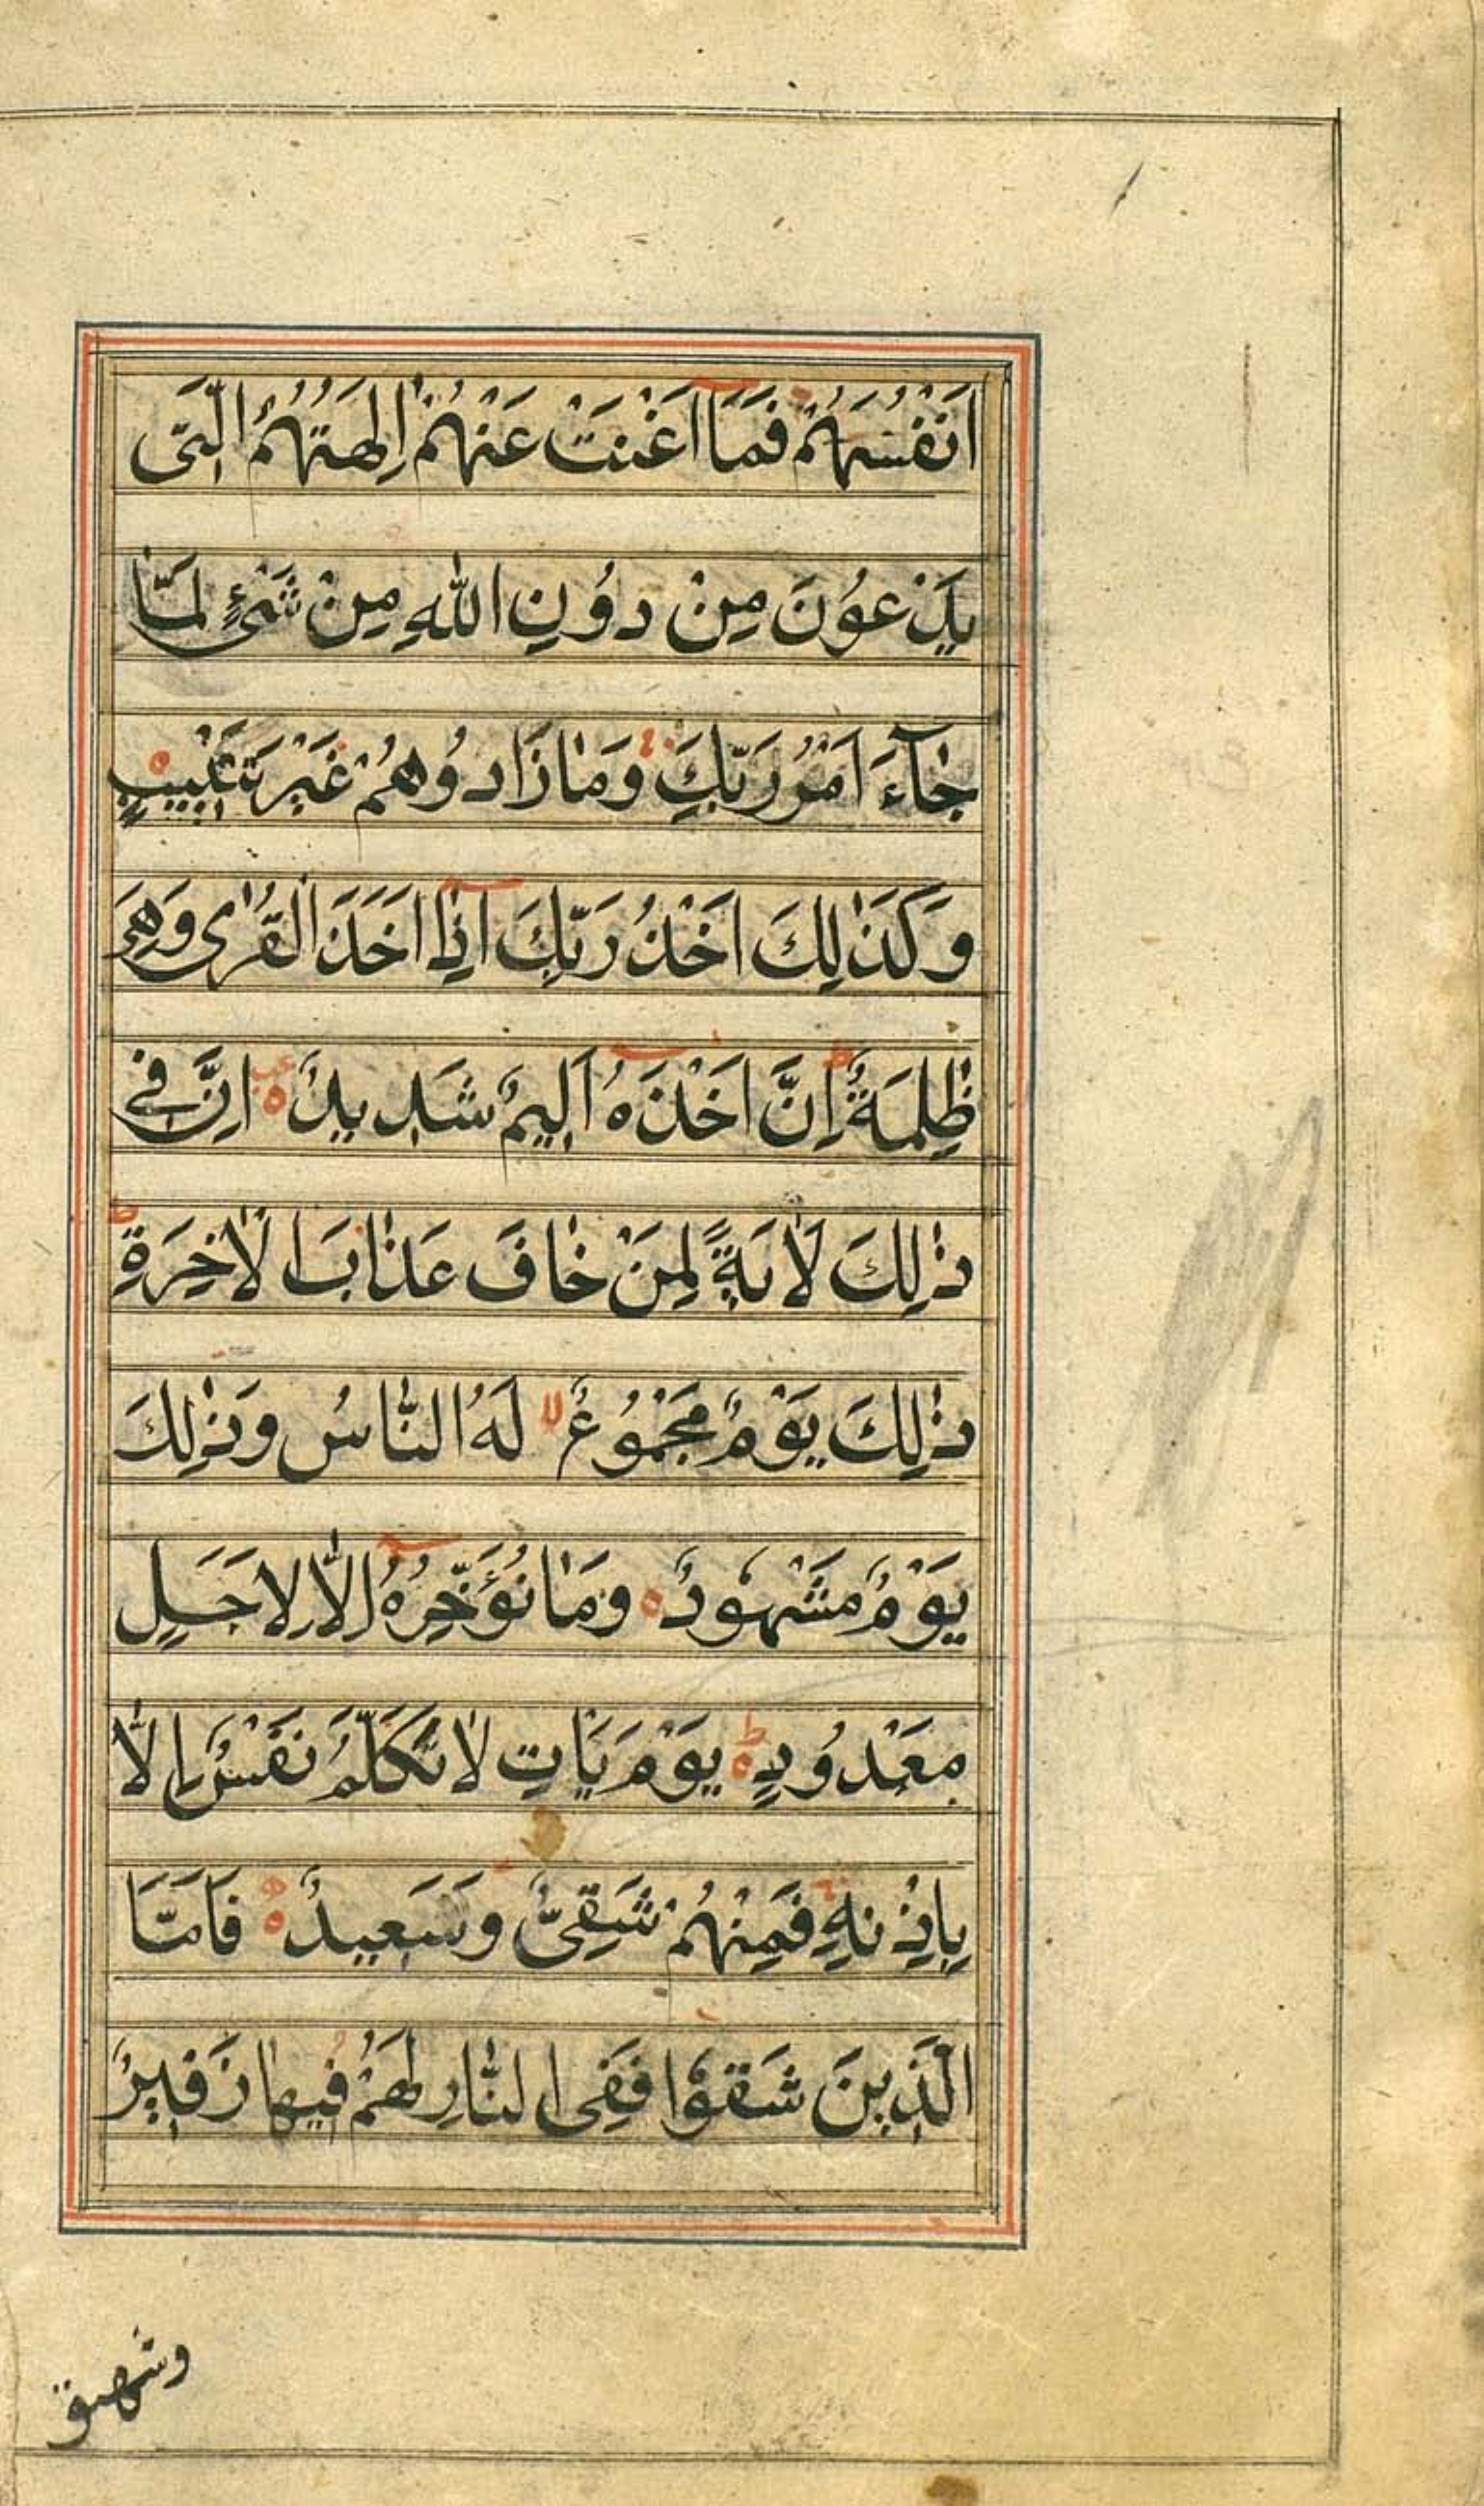 اَنْفُسَهُمْ فَمَا اَغْنَتْ عَنْهُمْ اٰلِهَتُهُمُ الَّتِى
يَدْعُوْنَ مِنْ دُوْنِ اللّٰهِ مِنْ شَىْءٍ لَمَّا
جَآءَ اَمْرُ رَبِّكَ وَمَا زَادُوْهُمْ غَيْرَ تَتْبِيْبٍ
وَكَذٰلِكَ اَخْذُ رَبِّكَ اِذَا اَخَذَ الْقُرٰى وَهِىَ
ظٰلِمَةٌ ط اِنَّ اَخْذَهٗ اَلِيْمٌ شَدِيْدٌ ه اِنَّ فِىْ
ذٰلِكَ لَاٰيَةً لِمَنْ خَافَ عَذَابَ الْاٰخِرَةِ ط
ذٰلِكَ يَوْمٌ مَجْمُوْعٌ لا لَهُ النَّاسُ وَذٰلِكَ
يَوْمٌ مَشْهُوْدٌ ه وَمَا نُؤَخِّرُهٗ اِلَّا لِاَجَلٍ
مَعْدُوْدٍ ه ط يَوْمَ يَاْتِ لَا تَكَلَّمُ نَفْسٌ اِلَّا
بِاِذْنِهٖ فَمِنْهُمْ شَقِىٌّ وَسَعِيْدٌ ه فَاَمَّا
الَّذِيْنَ شَقُوْا فَفِى النَّارِ لَهُمْ فِيْهَا زَفِيْرٌ
وشهيق